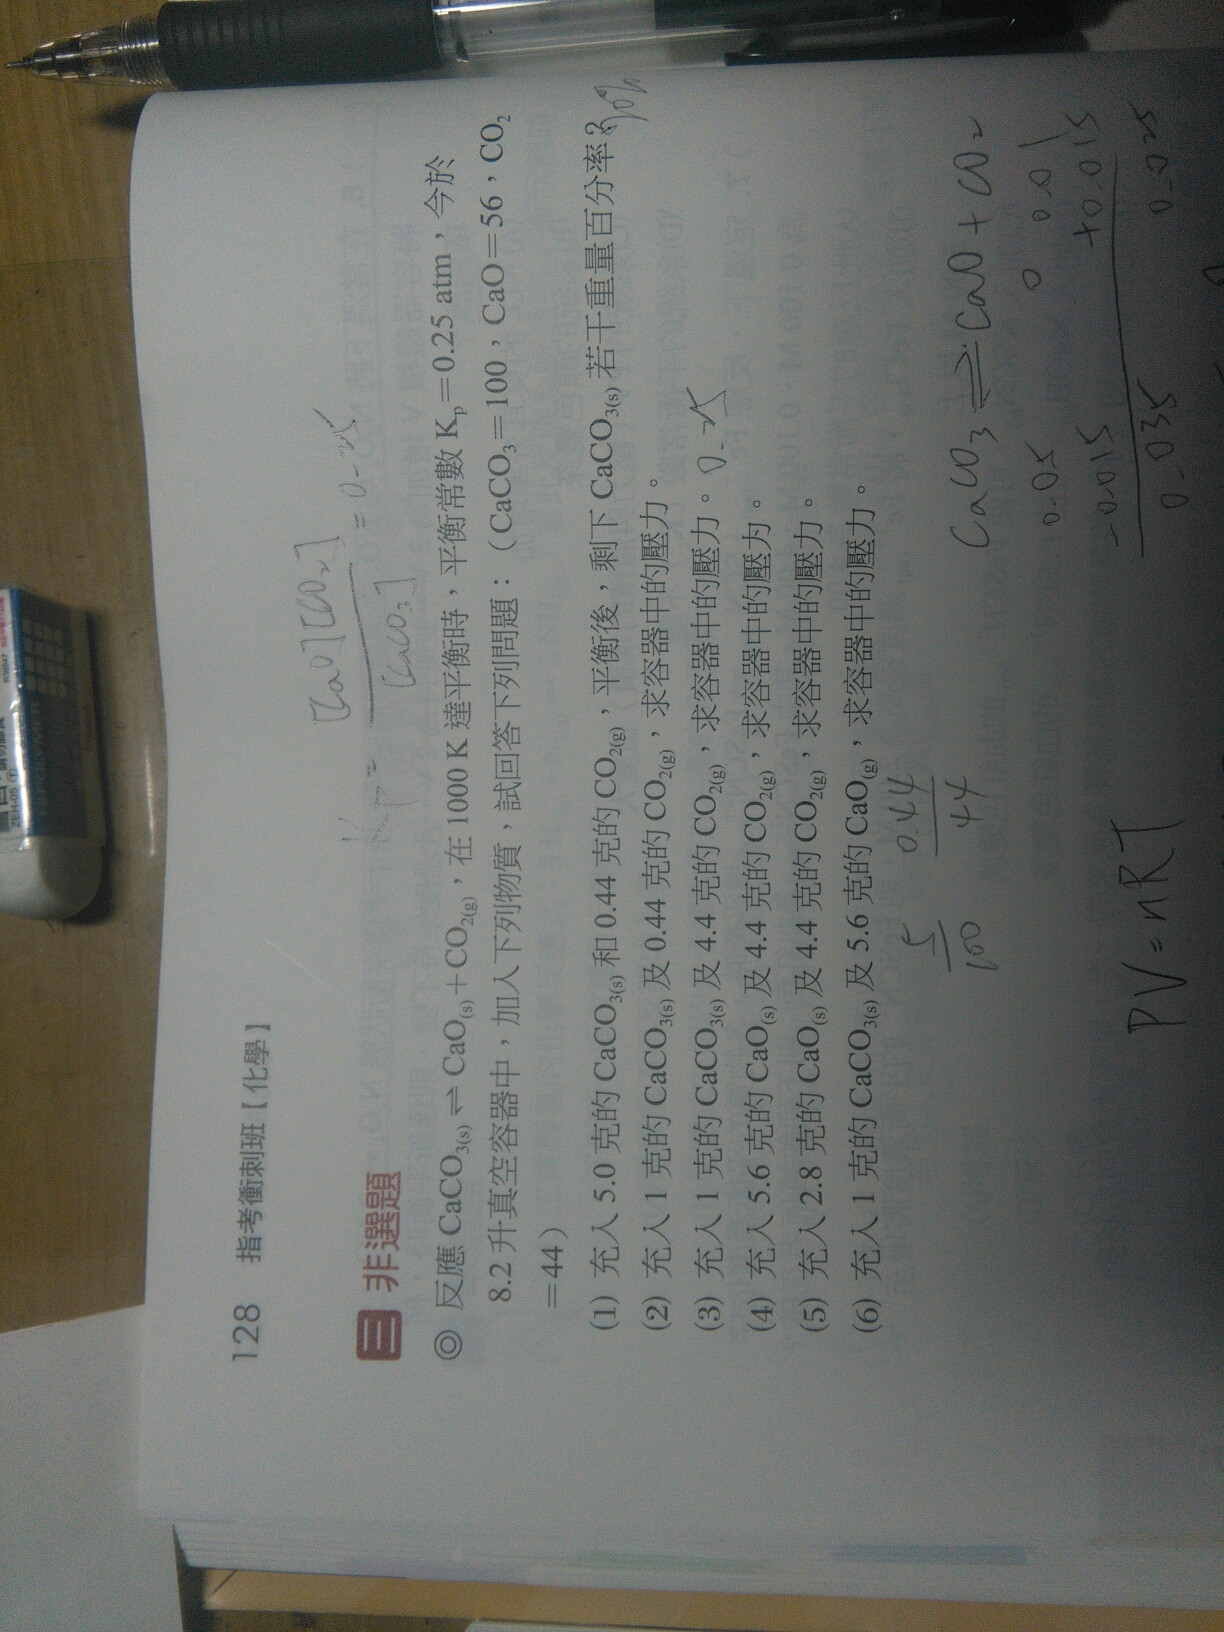 128 指考衝刺班【化學】
三 非選題
Kp= [CaO][CO₂] / [CaCO₃] = 0.25
◎ 反應 CaCO₃(s) ⇌ CaO(s)+CO₂(g),在 1000 K 達平衡時,平衡常數 Kp=0.25 atm,今於
8.2 升真空容器中,加入下列物質,試回答下列問題:(CaCO₃=100,CaO=56,CO₂
=44)
(1) 充入 5.0 克的 CaCO₃(s) 和 0.44 克的 CO₂(g),平衡後,剩下 CaCO₃(s) 若干重量百分率? 70%
(2) 充入 1 克的 CaCO₃(s) 及 0.44 克的 CO₂(g),求容器中的壓力。
(3) 充入 1 克的 CaCO₃(s) 及 4.4 克的 CO₂(g),求容器中的壓力。 0.25
(4) 充入 5.6 克的 CaO(s) 及 4.4 克的 CO₂(g),求容器中的壓力。
(5) 充入 2.8 克的 CaO(s) 及 4.4 克的 CO₂(g),求容器中的壓力。
(6) 充入 1 克的 CaCO₃(s) 及 5.6 克的 CaO(g),求容器中的壓力。
5/100 0.44/44
CaCO₃ ⇌ CaO + CO₂
0.05 0 0.01
-0.015 +0.015
0.035 0.025
PV=nRT